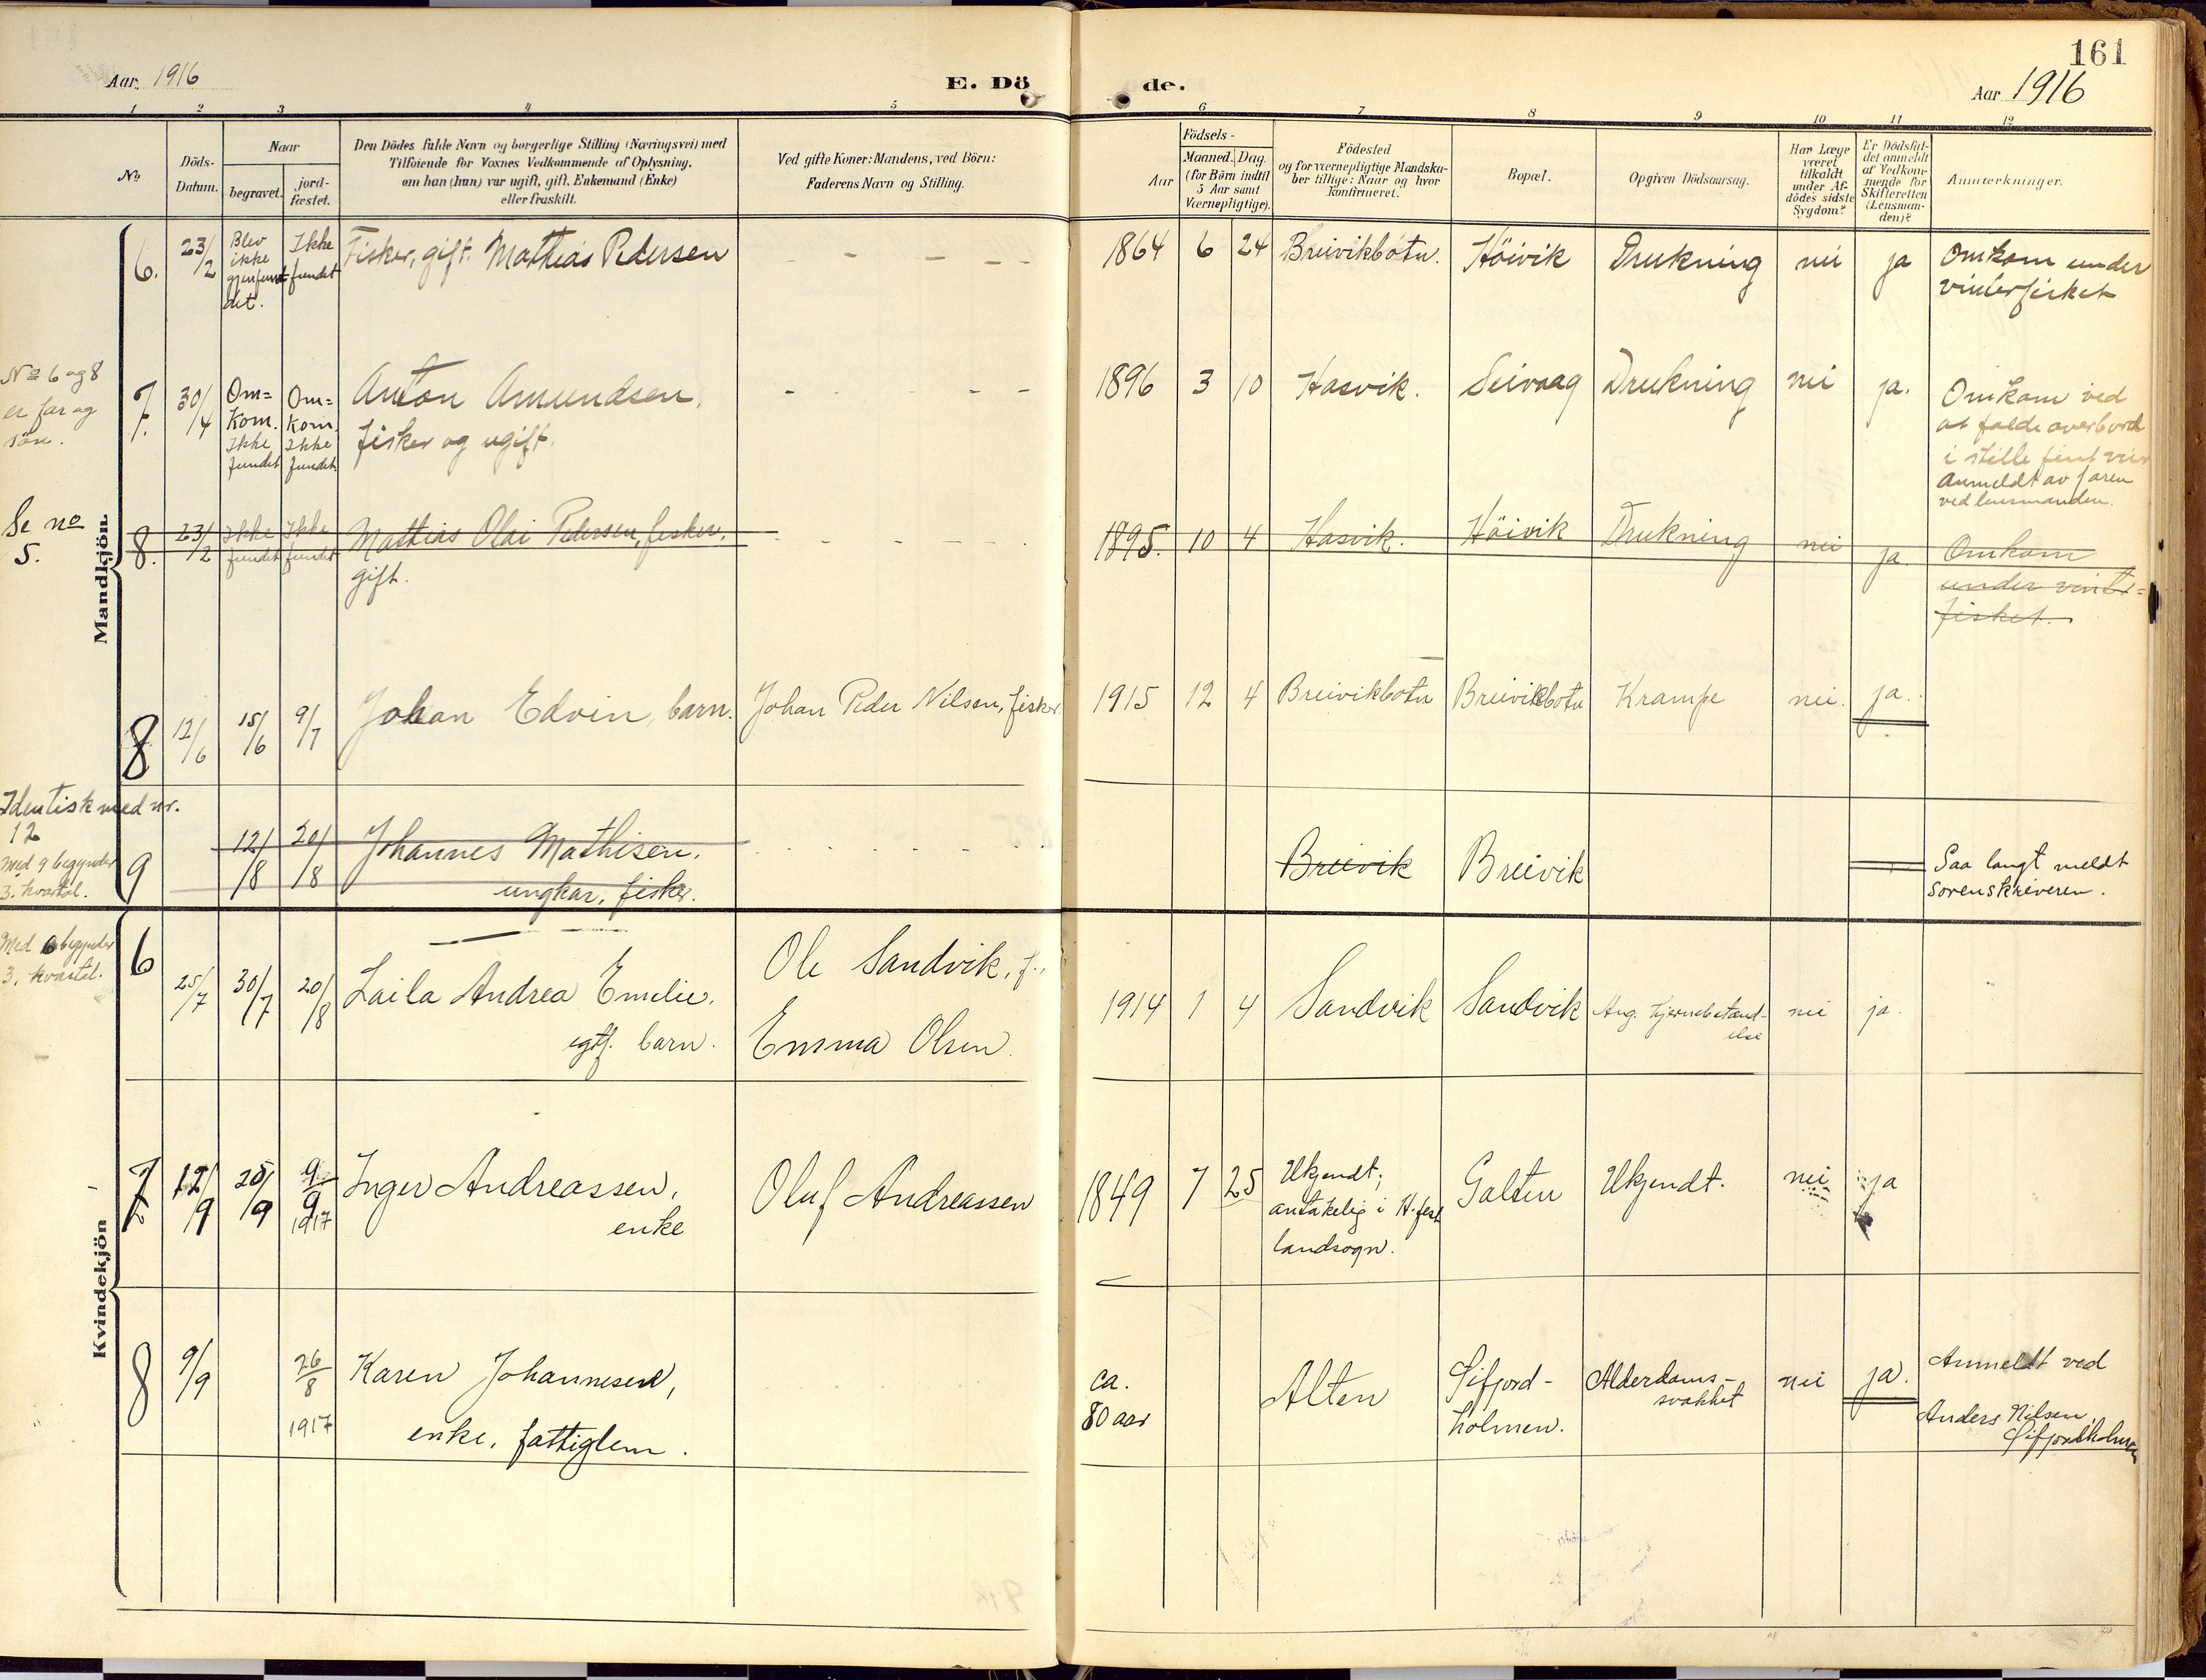 161
Aar. 1916
E. Dö
de.
Aar 1916
1 2 3 4 5 6 7 8 9 10 11 12
No
Döds-
Datum.
Naar
begravet.
jord-
fæstet.
Den Dödes fulde Navn og borgerlige Stilling (Næringsvei) med
Tilföiende for Voxnes Vedkommende af Oplysning,
om han (hun) var ugift, gift, Enkemand (Enke)
eller fraskilt.
Ved gifte Koner: Mandens, ved Börn:
Faderens Navn og Stilling.
Födsels-
Aar
Maaned. Dag.
(for Börn indtil
5 Aar samt
Værnepligtige).
Födested
og for værnepligtige Mandska-
ber tillige: Naar og hvor
konfirmeret.
Bopæl.
Opgiven Dödsaarsag.
Har Læge
været
tilkaldt
under Af-
dödes sidste
Sygdom?
Er Dödsfal-
det anmeldt
af Vedkom-
mende for
Skifteretten
(Lensman-
den)?
Anmærkninger.
Mandkjön.
6.
23/2
Blev
ikke
gjenfun-
det.
Ikke
fundet
Fisker, gift. Mathias Pedersen
- - - - -
1864 6 24 Breivikbotn. Höivik Drukning nei ja
Omkom under
vinterfisket
No 6 og 8
er far og
sön.
7.
30/4
Om=
kom.
Ikke
fundet
Om=
kom.
Ikke
fundet.
Anton Amundsen,
fisker og ugift.
- - - -
1896 3 10 Hasvik. Seivaag Drukning nei ja.
Omkom ved
at falde overbord
i stille fint veir
Anmeldt av faren
ved lensmanden.
Se no
5.
8.
23/2
Ikke
fundet
Ikke
fundet
Mathias Olai Pedersen, fisker,
gift.
1895. 10 4 Hasvik. Höivik Drukning nei ja.
Omkom
under vinter=
fisket.
8 12/6 15/6 9/7 Johan Edvin, barn. Johan Peder Nilsen, fisker.
1915 12 4 Breivikbotn Breivikbotn Krampe nei. ja.
Identisk med nr.
12
Med 9 begynder
3. kvartal.
9 12/8 20/8 Johannes Mathisen,
ungkar, fisker.
Breivik Breivik
Saa langt meldt
sorenskriveren.
Kvindekjön
Med 6 begynder
3. kvartal.
6
25/7 30/7 20/8 Laila Andrea Emelie,
egtf. barn.
Ole Sandvik, f.,
Emma Olsen.
1914 1 4 Sandvik Sandvik Ang. hjernebetænd-
else
nei ja.
7 12/9 25/9 9/9
1917
Inger Andreassen,
enke
Oluf Andreassen
1849 7 25
Ukjendt;
antakelig i H.fest
landsogn.
Galten Ukjendt. nei ja
8 9/9 26/8
1917
Karen Johannesen,
enke, fattiglem.
ca.
80 aar
Alten
Sifjord-
holmen.
Alderdoms-
svakhet
nei ja.
Anmeldt ved
Anders Nilsen,
Sifjordholmen